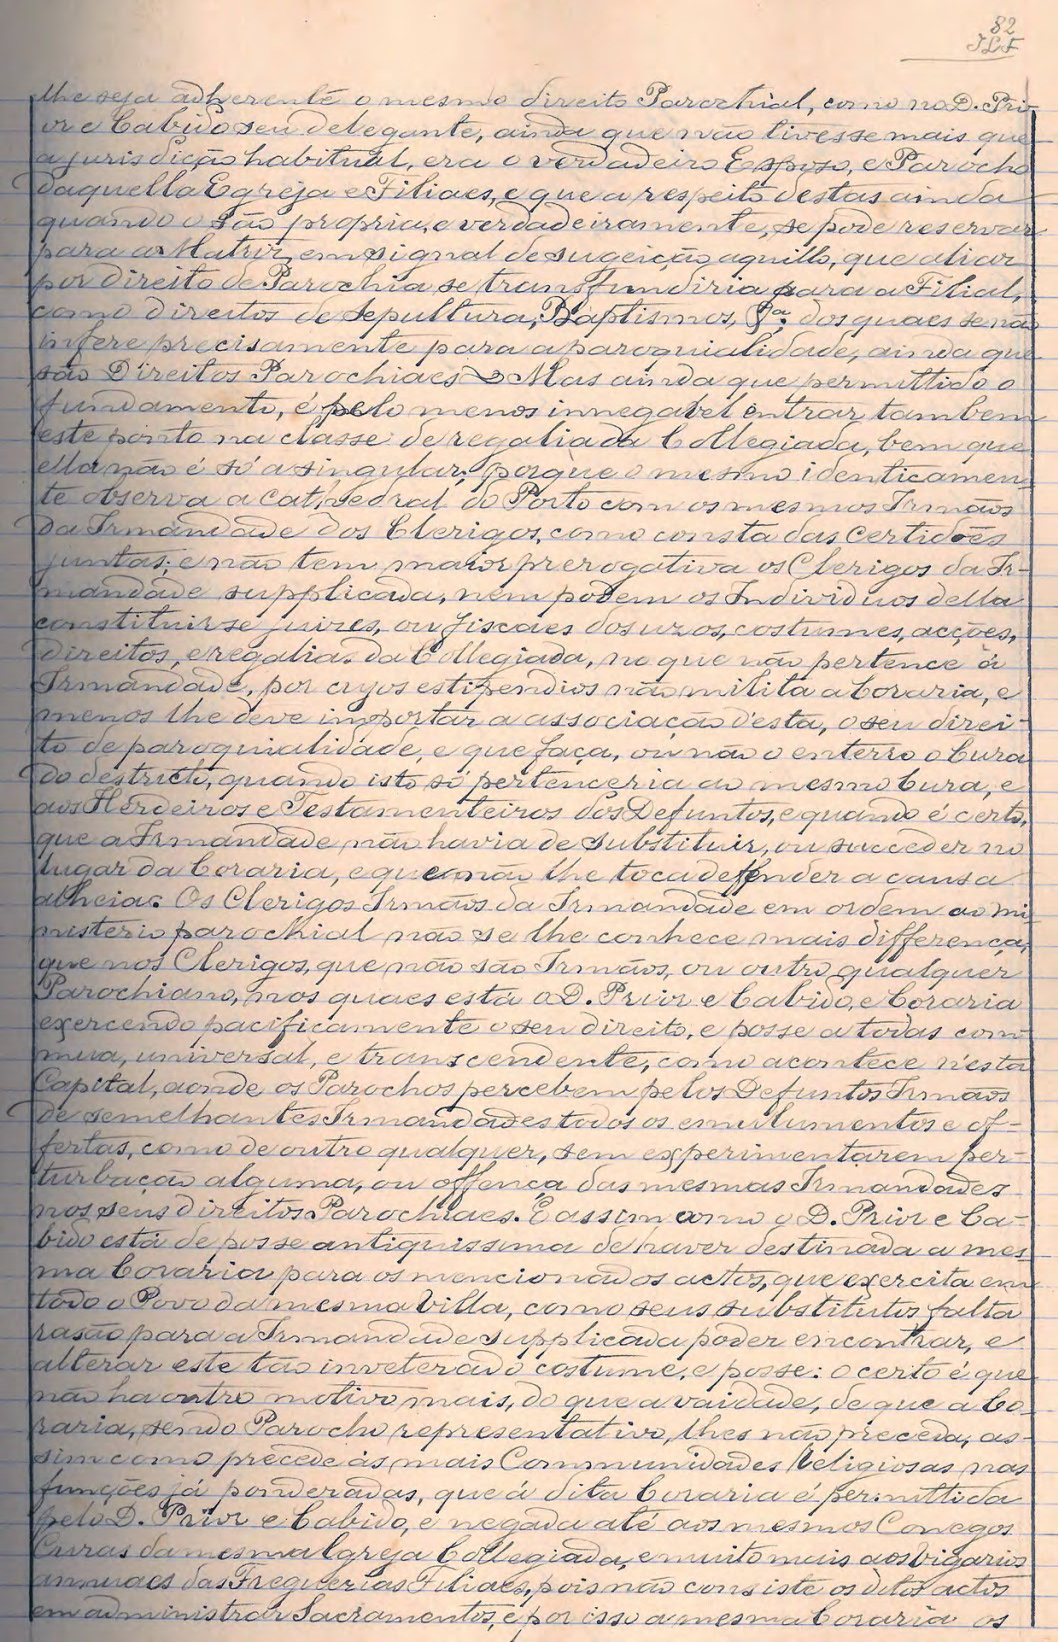 82
JLF
lhe seja adherente o mesmo direito Parochial, como no D. Pri-
or e Cabido seu delegante, ainda que não tivesse mais que
a jurisdição habitual, era o verdadeiro Esposo, e Parocho
daquella Egreja e Filiaes, e que a respeito destas ainda
quando o são propria, e verdadeiramente, se pode reservar
para a Matriz, em signal de sugeição aquillo, que aliar
por direito de Parochia se transfundiria para a Filial,
como direitos de Sepultura, Baptismos, &ª; dos quaes se não
infere precisamente para a paroquialidade, ainda que
são Direitos Parochiaes Mas ainda que permittido o
fundamento, é pelo menos innegavel entrar tambem
este ponto na classe de regalia da Collegiada, bem que
ella não é só a singular; porque o mesmo identicamen-
te observa a Cathedral do Porto com os mesmos Irmãos
da Irmandade dos Clerigos, como consta das Certidões
juntas; e não tem maior prerogativa os Clerigos da Ir-
mandade supplicada, nem podem os Individuos della
constituir-se juizes, ou fiscaes dos uzos, costumes, acções,
direitos, e regalias da Collegiada, no que não pertence á
Irmandade, por cujos estipendios não milita a Coraria, e
menos lhe deve importar a associação d'esta, o seu direi-
to de paroquialidade, e que faça, ou não o enterro o Cura
do destricto, quando isto só pertenceria ao mesmo Cura, e
aos Herdeiros e Testamenteiros dos Defuntos, e quando é certo,
que a Irmandade não havia de substituir, ou succeder no
lugar da Coraria, e que não lhe toca deffender a causa
alheia. Os Clerigos Irmãos da Irmandade em ordem ao mi-
nisterio parochial não se lhe conhece mais differença,
que nos Clerigos, que não são Irmãos, ou outro qualquer
Parochiano, nos quaes está o D. Prior e Cabido, e Coraria
exercendo pacificamente o seu direito, e posse a todas com-
mua, universal, e transcendente, como acontece n'esta
Capital, aonde os Parochos percebem pelos Defuntos Irmãos
de semelhantes Irmandades todos os emulumentos e of-
fertas, como de outro qualquer, sem experimentarem per-
turbação alguma, ou offença das mesmas Irmandades
nos seus direitos Parochiaes. E assim como o D. Prior e Ca-
bido está de posse antiquissima de haver destinada a mes-
ma Coraria para os mencionados actos, que exercita em
todo o Povo da mesma Villa, como seus substitutos, falta
rasão para a Irmandade supplicada poder encontrar, e
alterar este tão inveterado costume, e posse: o certo é que
não ha outro motivo mais, do que a vaidade, de que a Co-
raria, sendo Parocho representativo, lhes não preceda, as-
sim como precede ás mais Communidades Religiosas nas
funções já ponderadas, que á dita Coraria é permittida
pelo D. Prior e Cabido, e negada até aos mesmos Conegos
Curas da mesma Igreja Collegiada, e muito mais aos Vigarios
annuaes das Freguezias Filiaes, pois não consiste os ditos actos
em administrar Sacramentos, e por isso a mesma Coraria os